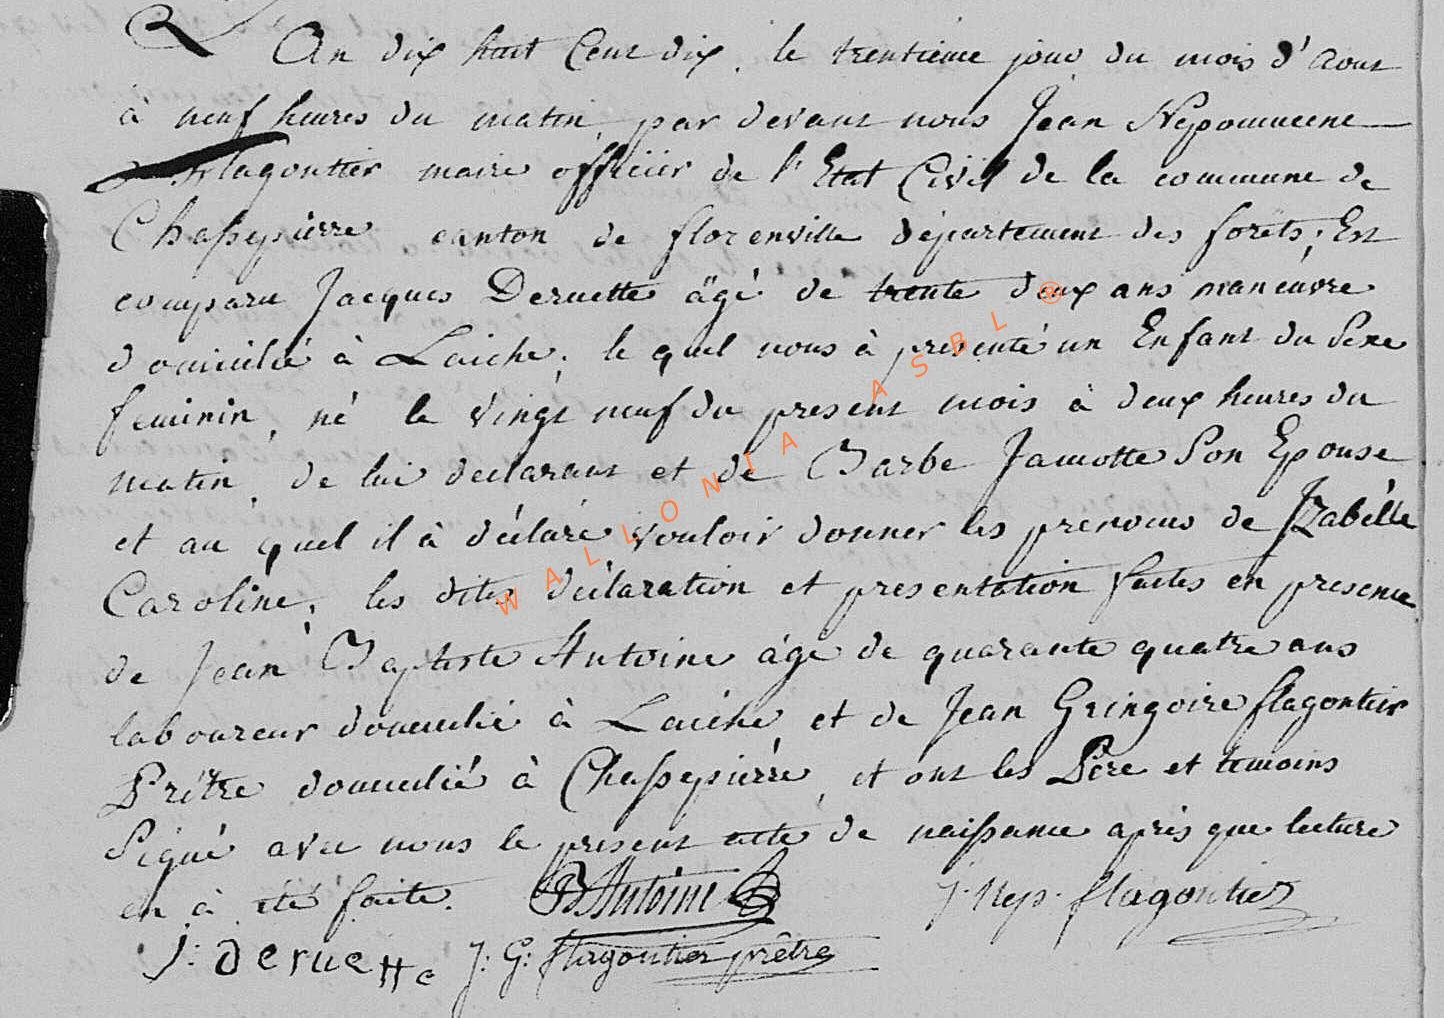 L'An dix huit Cent dix, le trentieme jour du mois d'Aout
à neuf heures du matin, par devant nous Jean Népomucene
Flagontier maire officier de l'Etat Civil de la commune de
Chassepierre canton de florenville département des forêts, Est
comparu Jacques Deruette âgé de trente deux ans manœuvre
domicilié à Laiche, le quel nous à présenté un Enfant du Sexe
feminin, né le vingt neuf du present mois à deux heures du
matin, de lui declarant et de Barbe Jamotte Son Epouse
et au quel il à déclaré vouloir donner les prenoms de Izabelle
Caroline, les dites déclaration et presentation faites en presence
de Jean Baptiste Antoine âgé de quarante quatre ans
laboureur domicilié à Laiche, et de Jean Gringoire flagontier
Prêtre domicilié à Chassepierre, et ont les Père et temoins
Signé avec nous le present acte de naissance après que lecture
en à été faite.
JBAntoine
J. Nep. flagontier
J: deruette
J: G: flagontier prêtre
WALLONIA ASBL ®